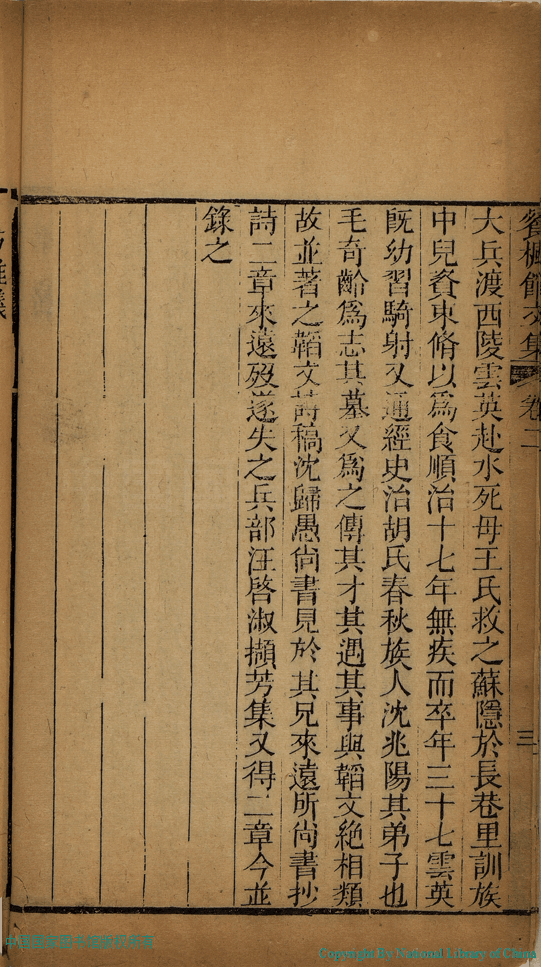 餐楓館文集 卷二 三
大兵渡西陵雲英赴水死母王氏救之蘇隱於長巷里訓族
中兒資束脩以爲食順治十七年無疾而卒年三十七雲英
旣幼習騎射又通經史治胡氏春秋族人沈兆陽其弟子也
毛奇齡爲志其墓又爲之傳其才其遇其事與韜文絶相類
故並著之韜文詩稿沈歸愚尙書見於其兄來遠所尙書抄
詩二章來遠歿遂失之兵部汪啓淑擷芳集又得二章今並
錄之
Copyright By National Library of China